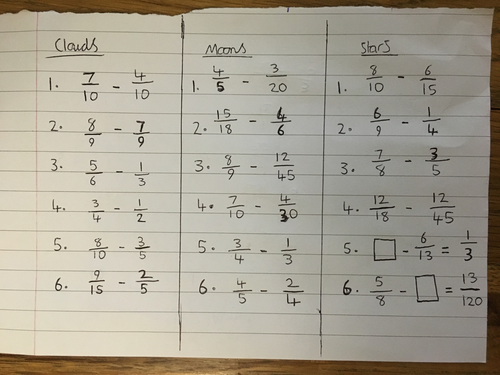 Clouds
1. 7/10 - 4/10
2. 8/9 - 7/9
3. 5/6 - 1/3
4. 3/4 - 1/2
5. 8/10 - 3/5
6. 9/15 - 2/5
Moons
1. 4/5 - 3/20
2. 15/18 - 4/6
3. 8/9 - 12/45
4. 7/10 - 4/30
5. 3/4 - 1/3
6. 4/5 - 2/4
Stars
1. 8/10 - 6/15
2. 6/9 - 1/4
3. 7/8 - 3/5
4. 12/18 - 12/45
5. □ - 6/13 = 1/3
6. 5/8 - □ = 13/120